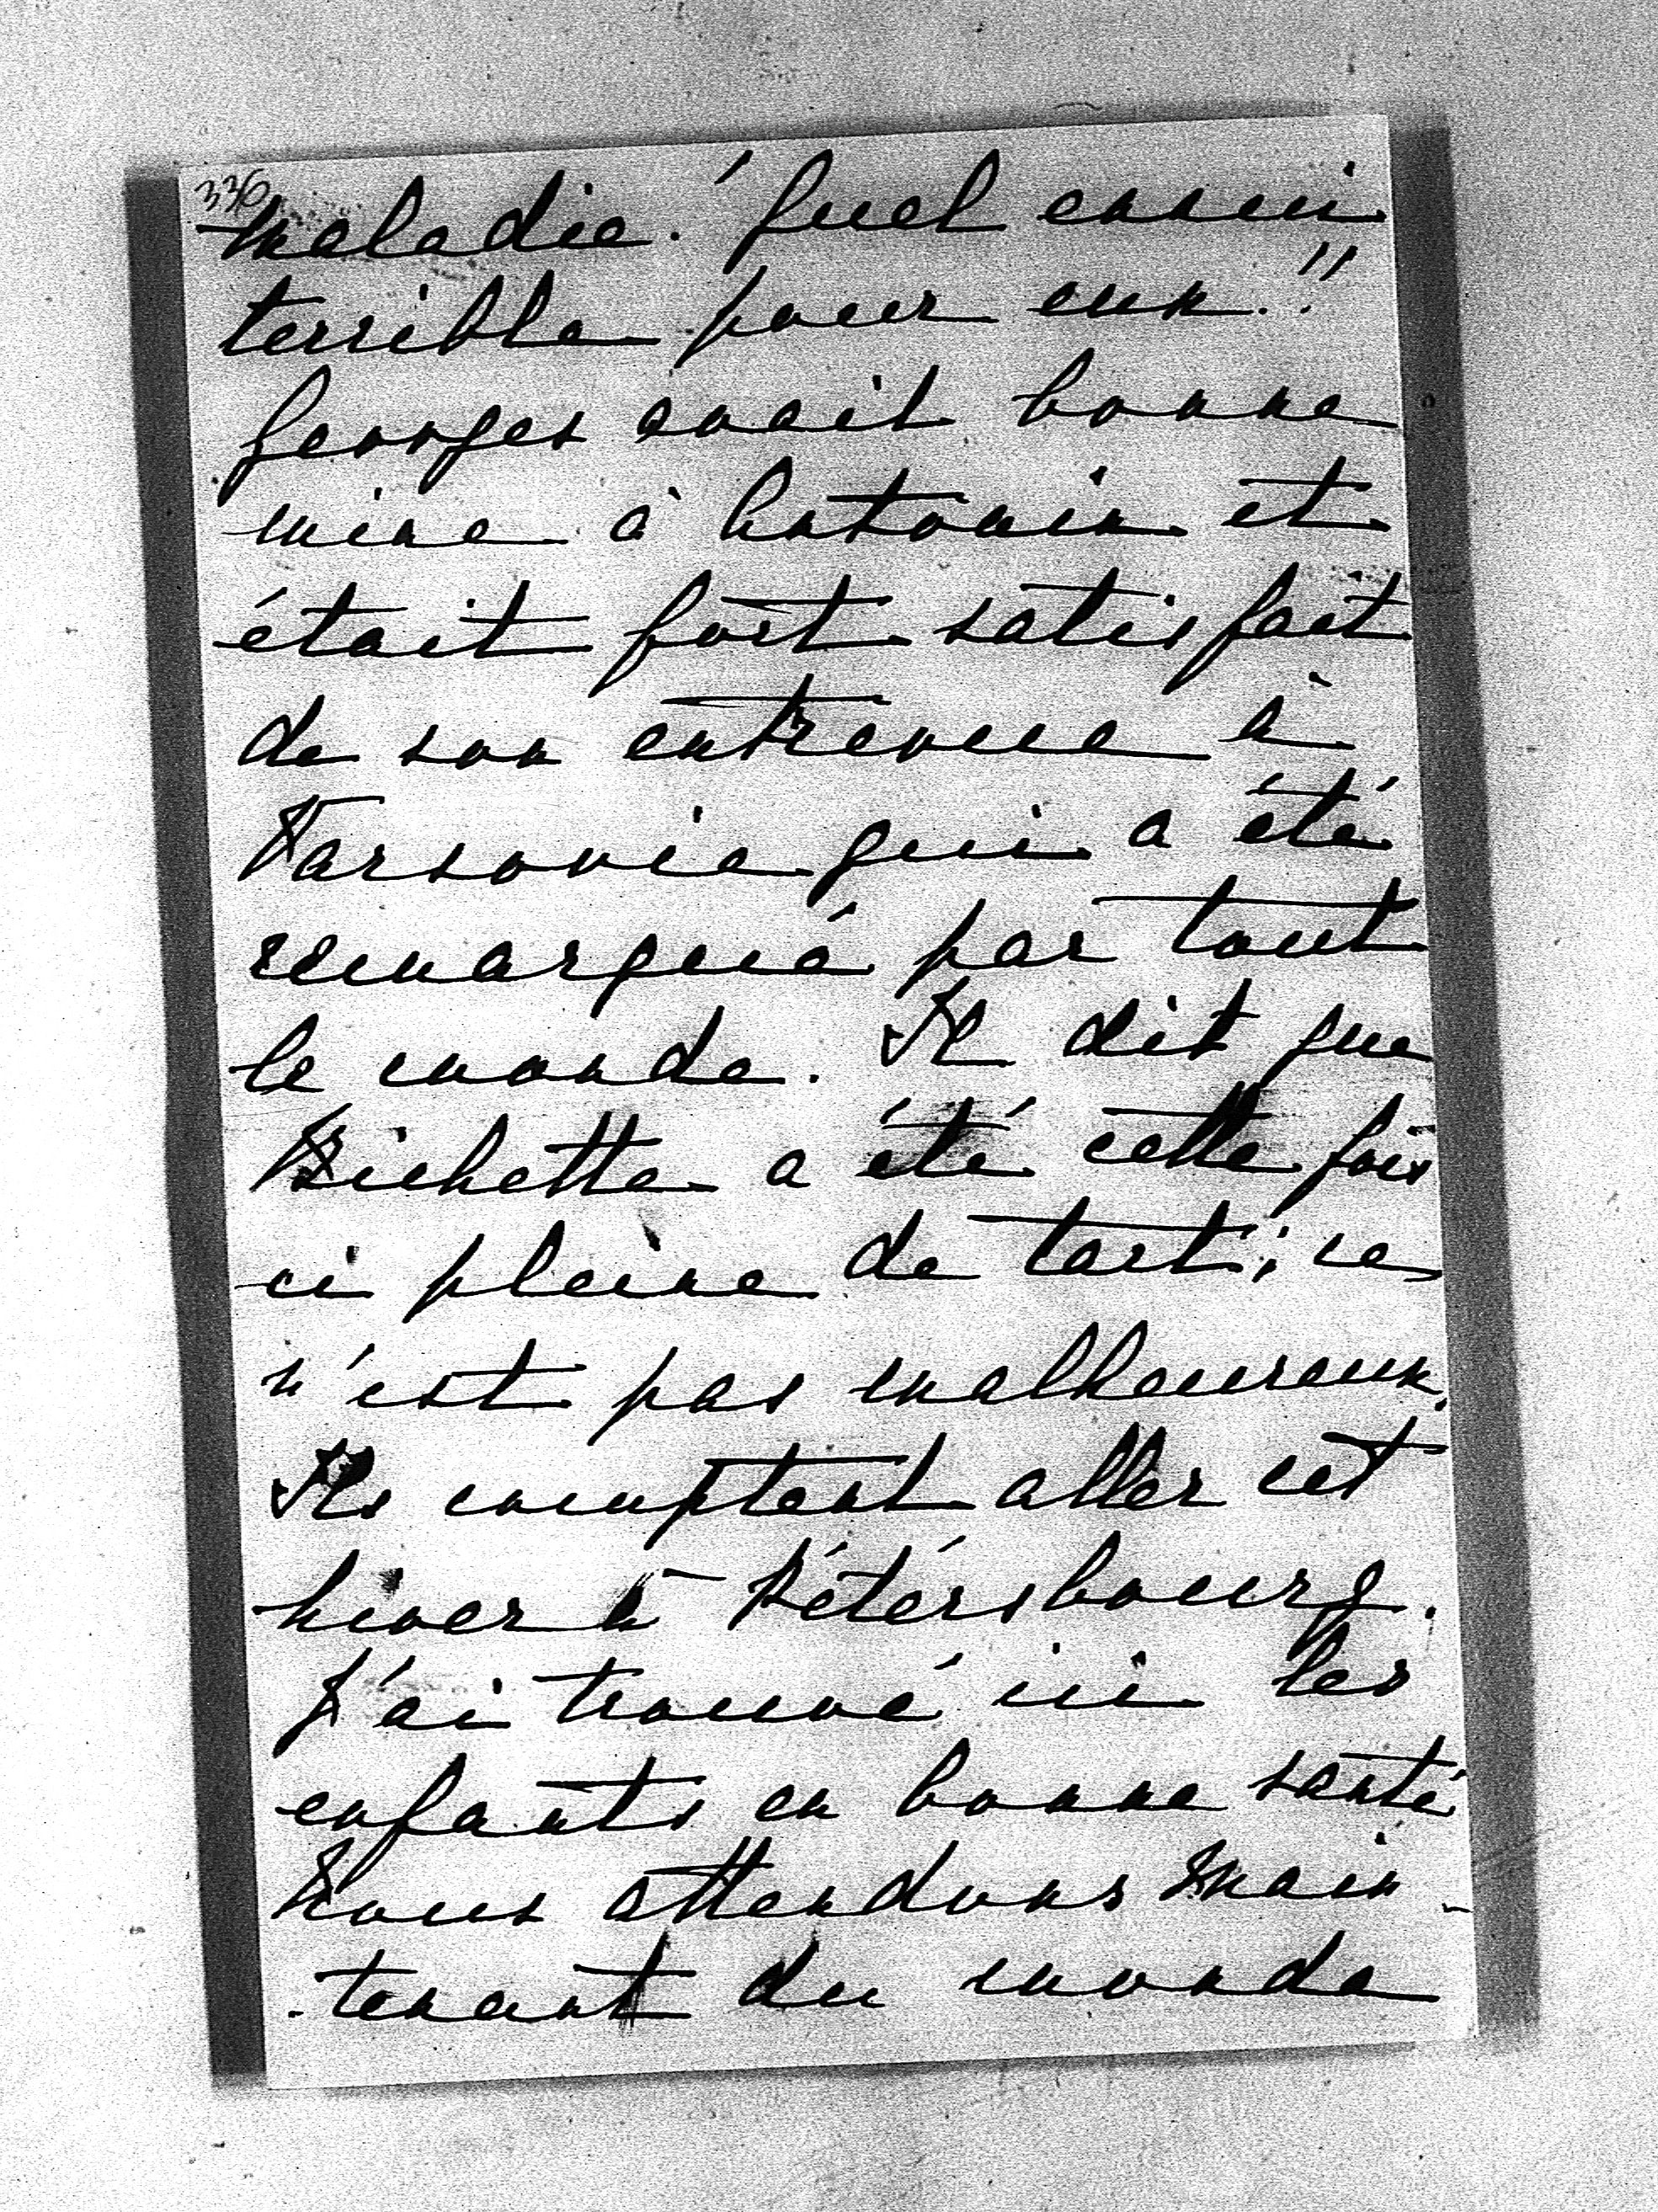 336
maladie! Quel ennui
terrible pour eux!!
Georges avait bonne
mine à Antonin et
était fort satisfait
de son entrevue à
Varsovie qui a été
remarqué par tout
le monde. Il dit que
Bichette a été cette fois
ci pleine de tact; ce
n'est pas malheureux.
Ils comptent aller cet
hiver à Pétérsbourg.
J'ai trouvé ici les
enfants en bonne santé
Nous attendons main-
-tenant du monde